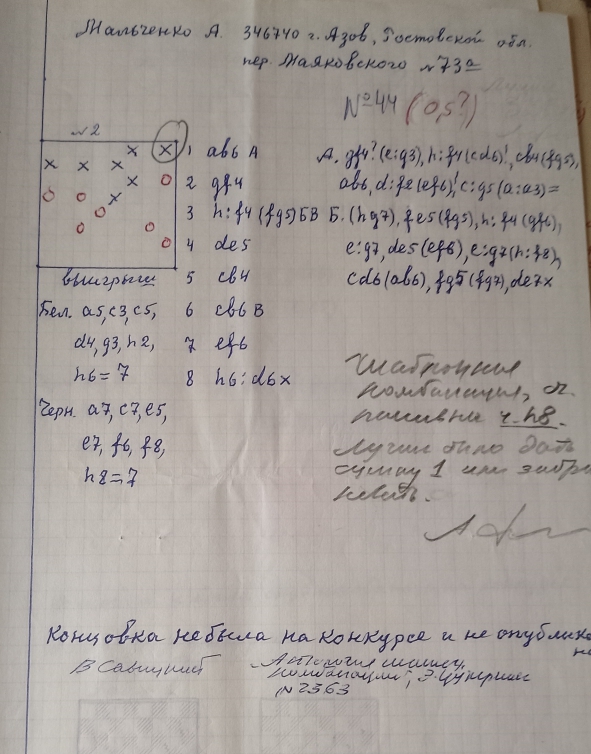 Мальченко А. 346740 г. Азов, Ростовской обл.
пер. Маяковского №73а
№44 (0,5?)
№2
1 ab6 A
2 gf4
3 h:f4 (fg5) Б В
4 de5
5 cb4
6 cb6 В
7 ef6
8 h6:d6x
А. gf4? (e:g3), h:f4 (cd6)!, cb4 (fg5),
ab6, d:f2 (ef6)! c:g5 (a:a3)=
Б. (hg7), fe5 (fg5), h:f4 (gf6),
e:g7, de5 (ef6), e:g7 (h:f8),
cd6 (ab6), fg5 (fg7), de7x
выигрыш
Бел. a5, c3, c5,
d4, g3, h2,
h6=7
Черн. a7, c7, e5,
e7, f6, f8,
h8=7
Шаблонная
комбинация,
пассивна ч. h8.
Лучше было дать
оценку 1 или забра
ковать.
Концовка не была на конкурсе и не опублико
В Савицкий
комбинаций",
№2363